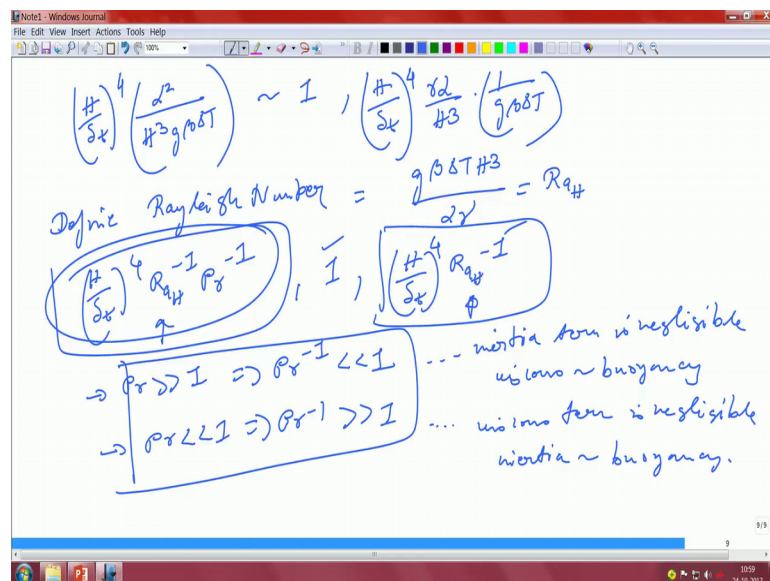 Note1 - Windows Journal
File Edit View Insert Actions Tools Help
100%
(H/δt)^4 (α²/H³gβΔT) ~ 1, (H/δt)^4 γα/H3 · (1/gβΔT)
Define Rayleigh Number = gβΔTH3/αγ = Ra_H
(H/δt)^4 Ra_H^-1 Pr^-1, 1, (H/δt)^4 Ra_H^-1
→ Pr>>1 => Pr^-1 <<1 .... inertia term is negligible
viscous ~ buoyancy
→ Pr<<1 => Pr^-1 >>1 .... viscous term is negligible
inertia ~ buoyancy.
9/9
9
10:59
24-10-2017